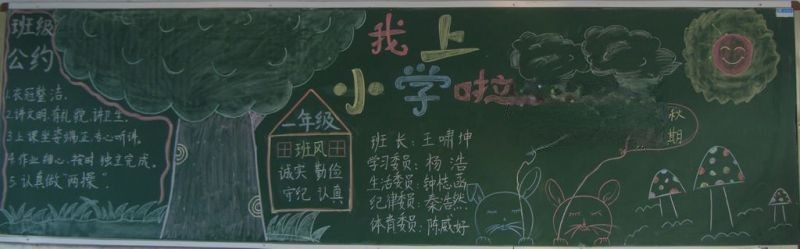 班级
公约
1.衣冠整洁.
2.讲文明.有礼貌.讲卫生.
3.上课坐姿端正.专心听讲.
4.作业细心.按时 独立完成.
5.认真做"两操".
我上
小学啦
一年级
班风
诚实 勤俭
守纪 认真
班 长:王啸坤
学习委员:杨 浩
生活委员:钟梽菡
纪律委员:秦浩然
体育委员:陈威好
秋
期